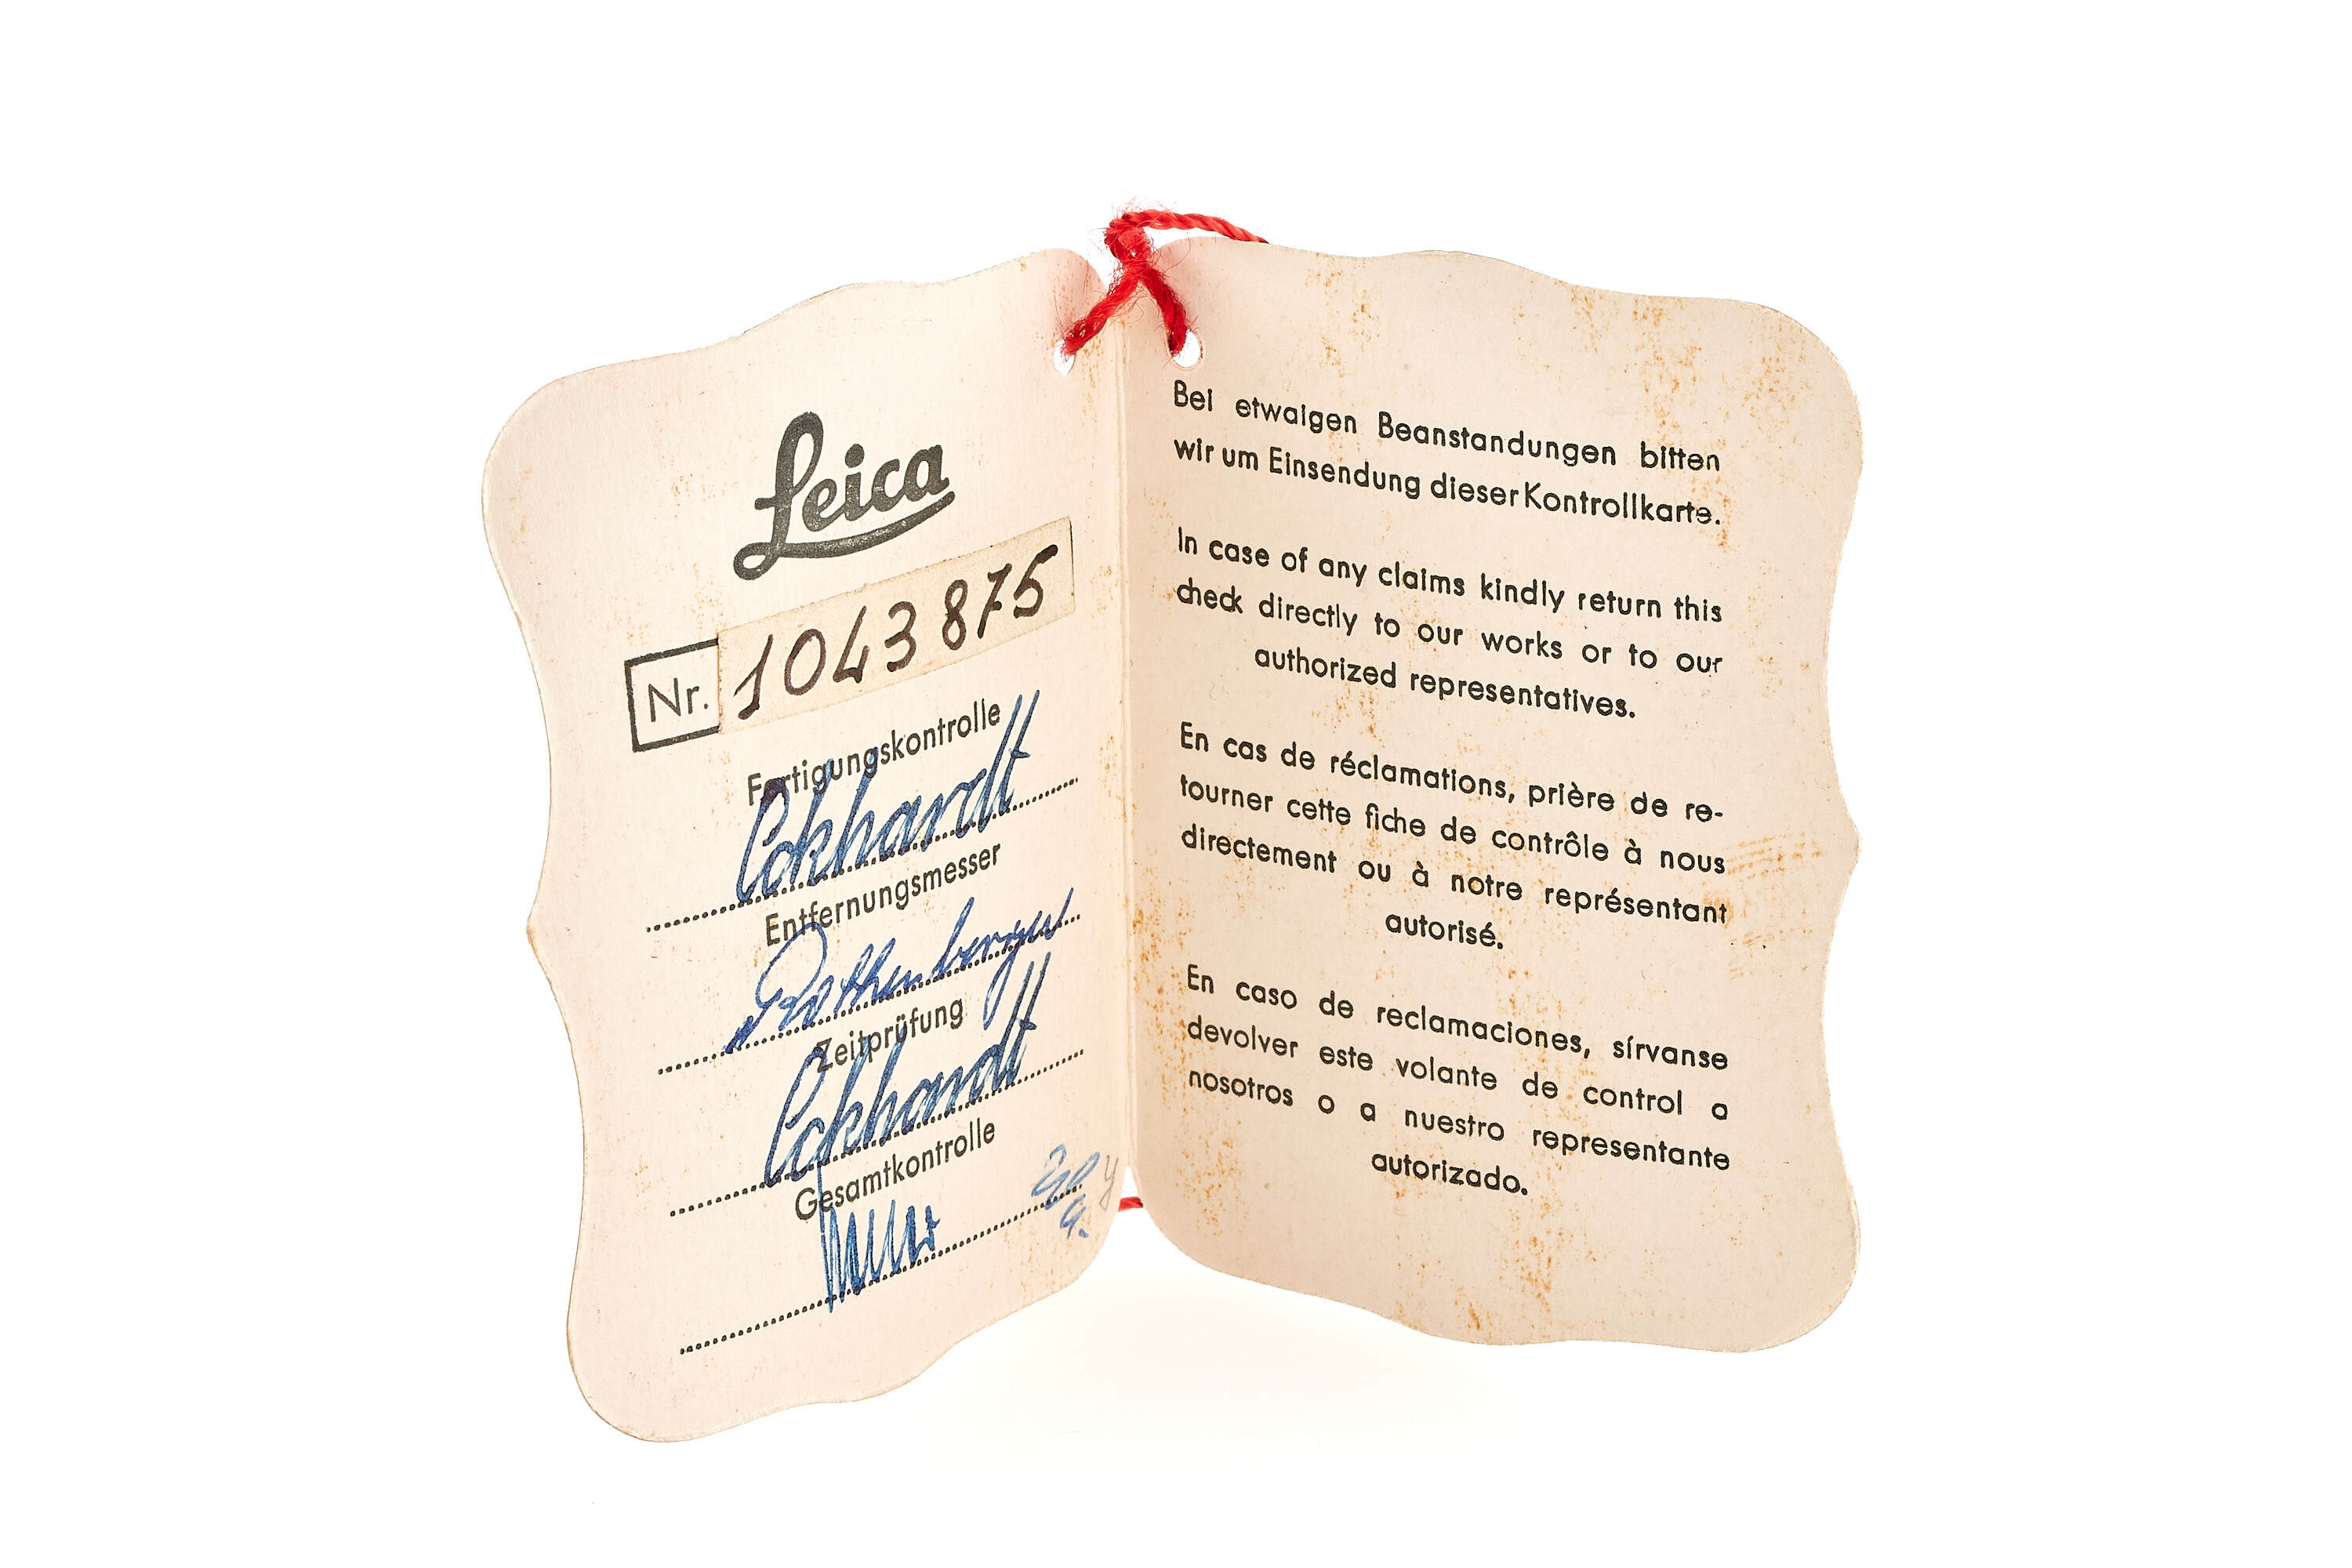 Leica
Nr. 1043875
Fertigungskontrolle
Eckhardt
Entfernungsmesser
Zeitprüfung
Eckhardt
Gesamtkontrolle
Bei etwaigen Beanstandungen bitten
wir um Einsendung dieser Kontrollkarte.
In case of any claims kindly return this
check directly to our works or to our
authorized representatives.
En cas de réclamations, prière de re-
tourner cette fiche de contrôle à nous
directement ou à notre représentant
autorisé.
En caso de reclamaciones, sírvanse
devolver este volante de control a
nosotros o a nuestro representante
autorizado.